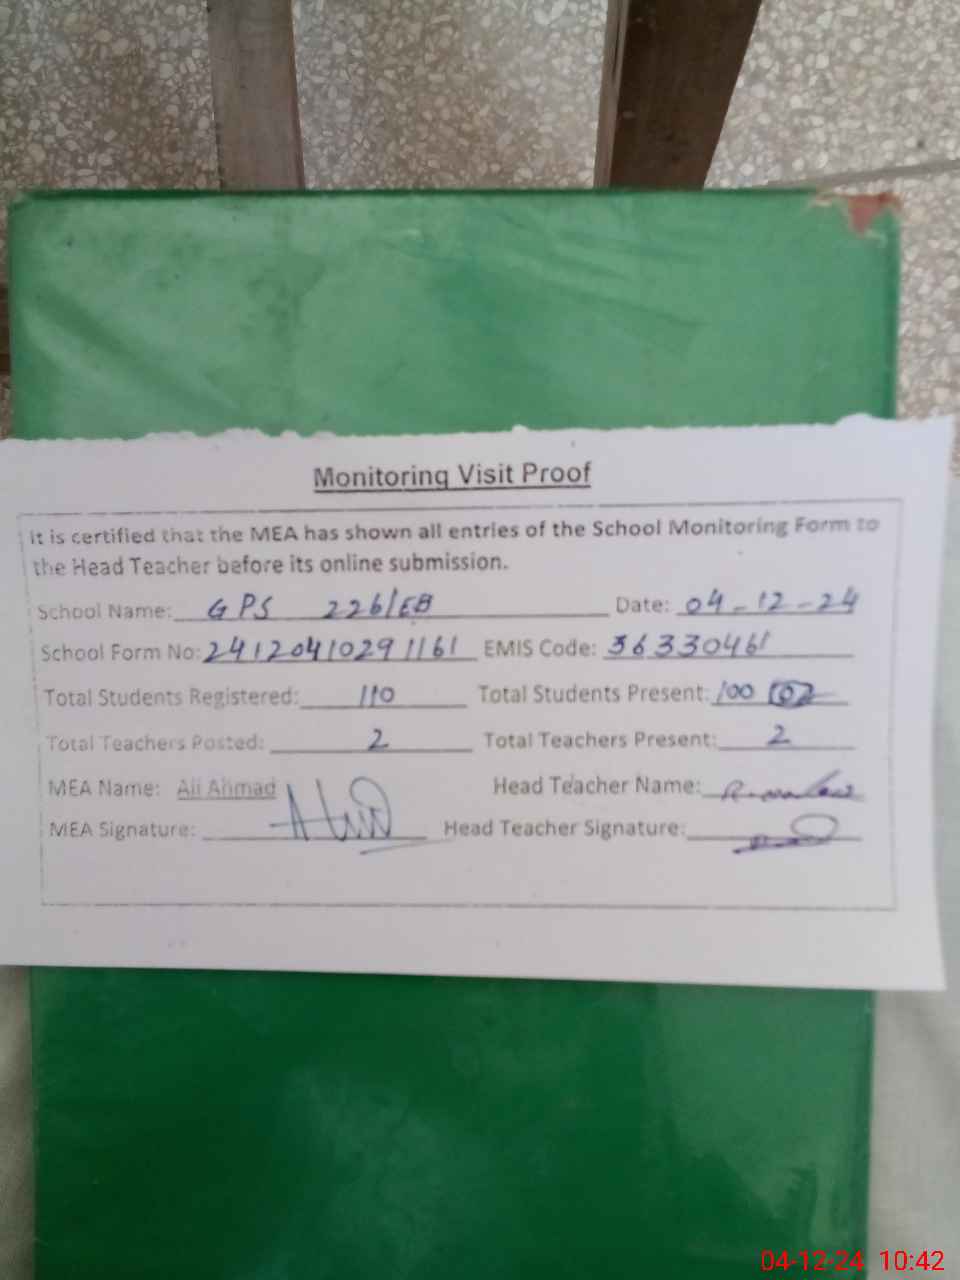 Monitoring Visit Proof
It is certified that the MEA has shown all entries of the School Monitoring Form to
the Head Teacher before its online submission.
School Name: GPS 226/EB Date: 04-12-24
School Form No: 24120410291161 EMIS Code: 36330461
Total Students Registered: 110 Total Students Present: 100 102
Total Teachers Posted: 2 Total Teachers Present: 2
MEA Name: Ali Ahmad Head Teacher Name:
MEA Signature: Head Teacher Signature:
04-12-24 10:42